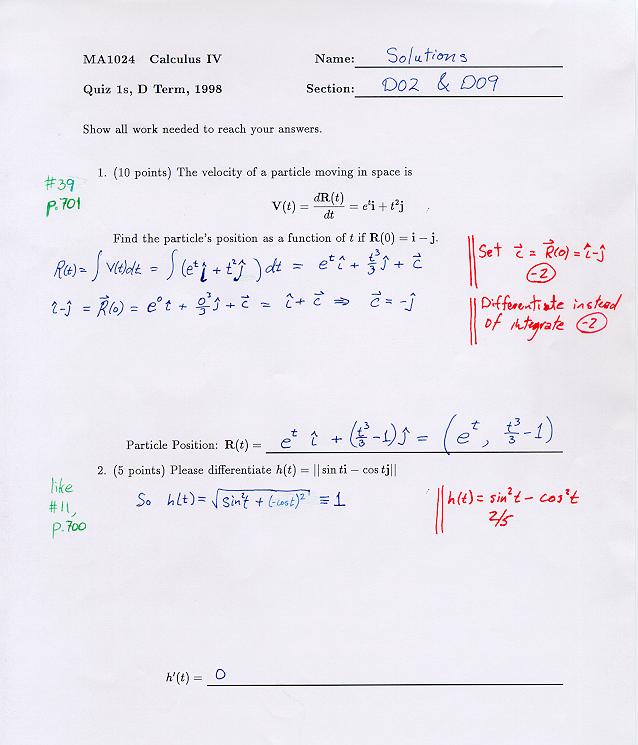 MA1024 Calculus IV Name: Solutions
Quiz 1s, D Term, 1998 Section: D02 & D09
Show all work needed to reach your answers.
#39
p.701
1. (10 points) The velocity of a particle moving in space is
V(t) = dR(t)/dt = e^t i + t^2 j
Find the particle's position as a function of t if R(0) = i − j.
R(t) = ∫ V(t)dt = ∫ (e^t î + t^2 ĵ) dt = e^t î + t^3/3 ĵ + c⃗
Set c⃗ = R⃗(0) = î-ĵ
-2
î-ĵ = R⃗(0) = e^0 î + 0^3/3 ĵ + c⃗ = î + c⃗ ⇒ c⃗ = -ĵ
Differentiate instead
of integrate -2
Particle Position: R(t) = e^t î + (t^3/3 -1) ĵ = (e^t, t^3/3 -1)
2. (5 points) Please differentiate h(t) = || sin ti − cos tj||
like
#11,
p.700
So h(t) = √(sin^2 t + (-cost)^2) ≡ 1
h(t) = sin^2 t - cos^2 t
2/5
h′(t) = 0